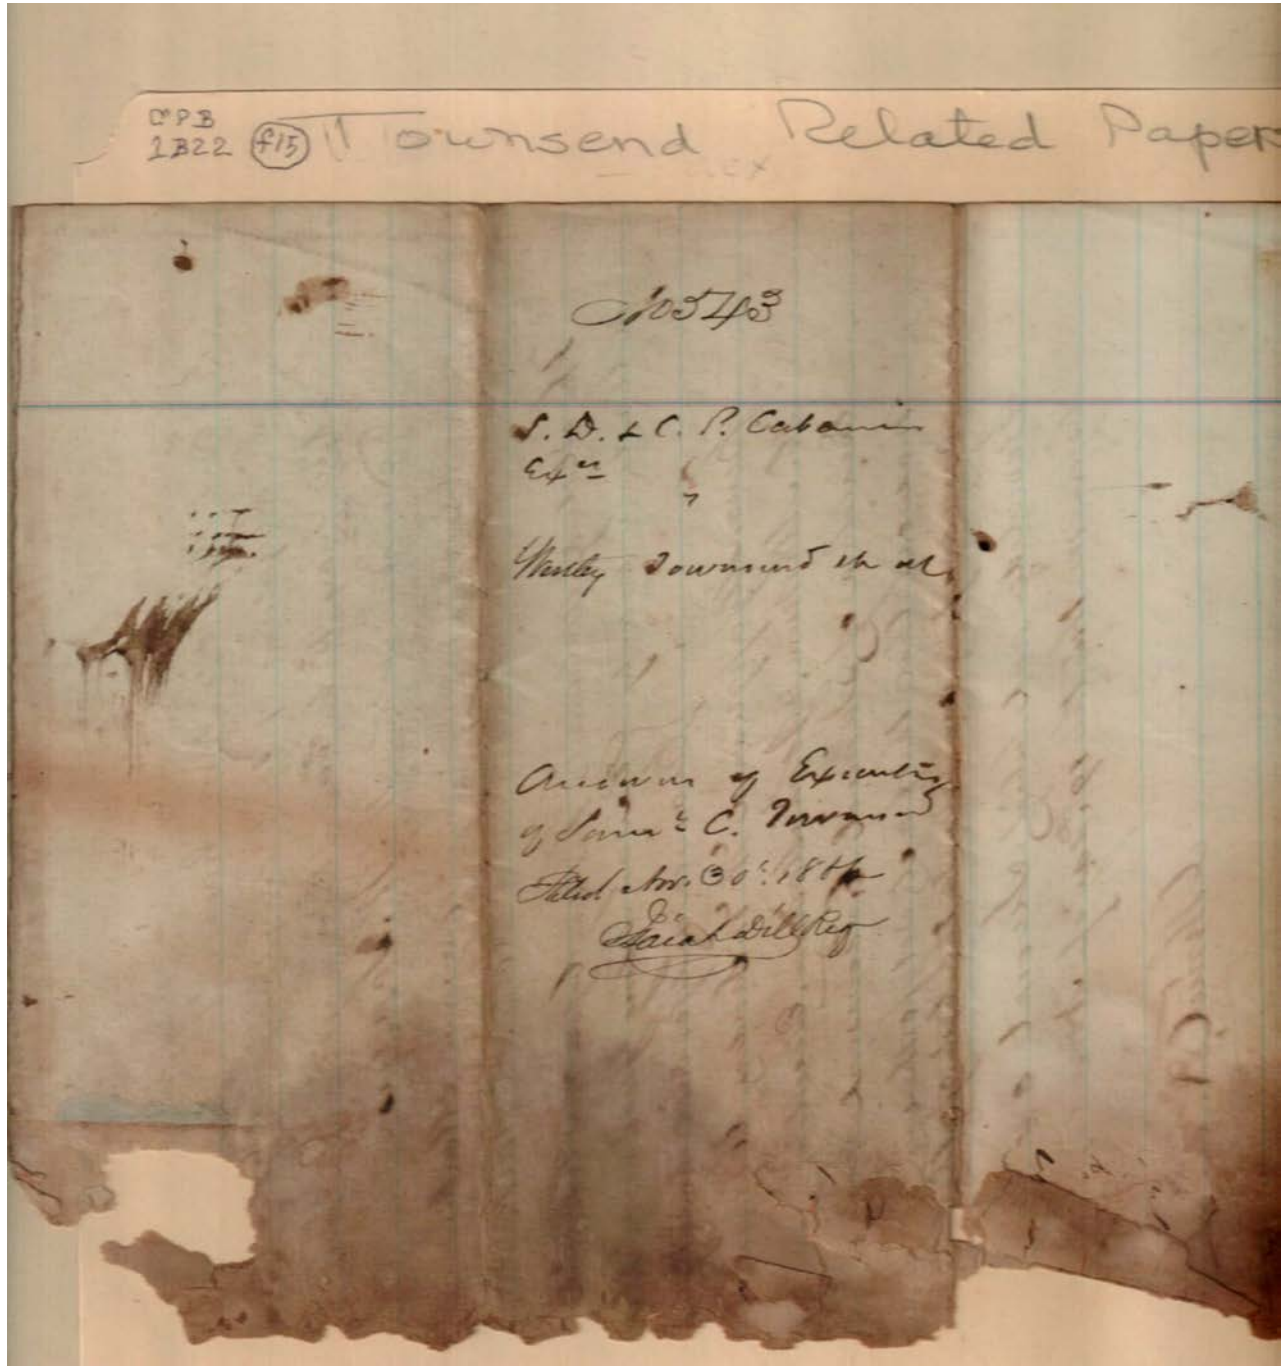 CPB
1B22 f15 Townsend Related Papers
No 543
S. D. & C. P. Cabaniss
Exrs
Wesley Townsend et al
Answer of Executors
of Saml C. Townsend
Filed Nov. 30th 18
Isaiah Dill Reg